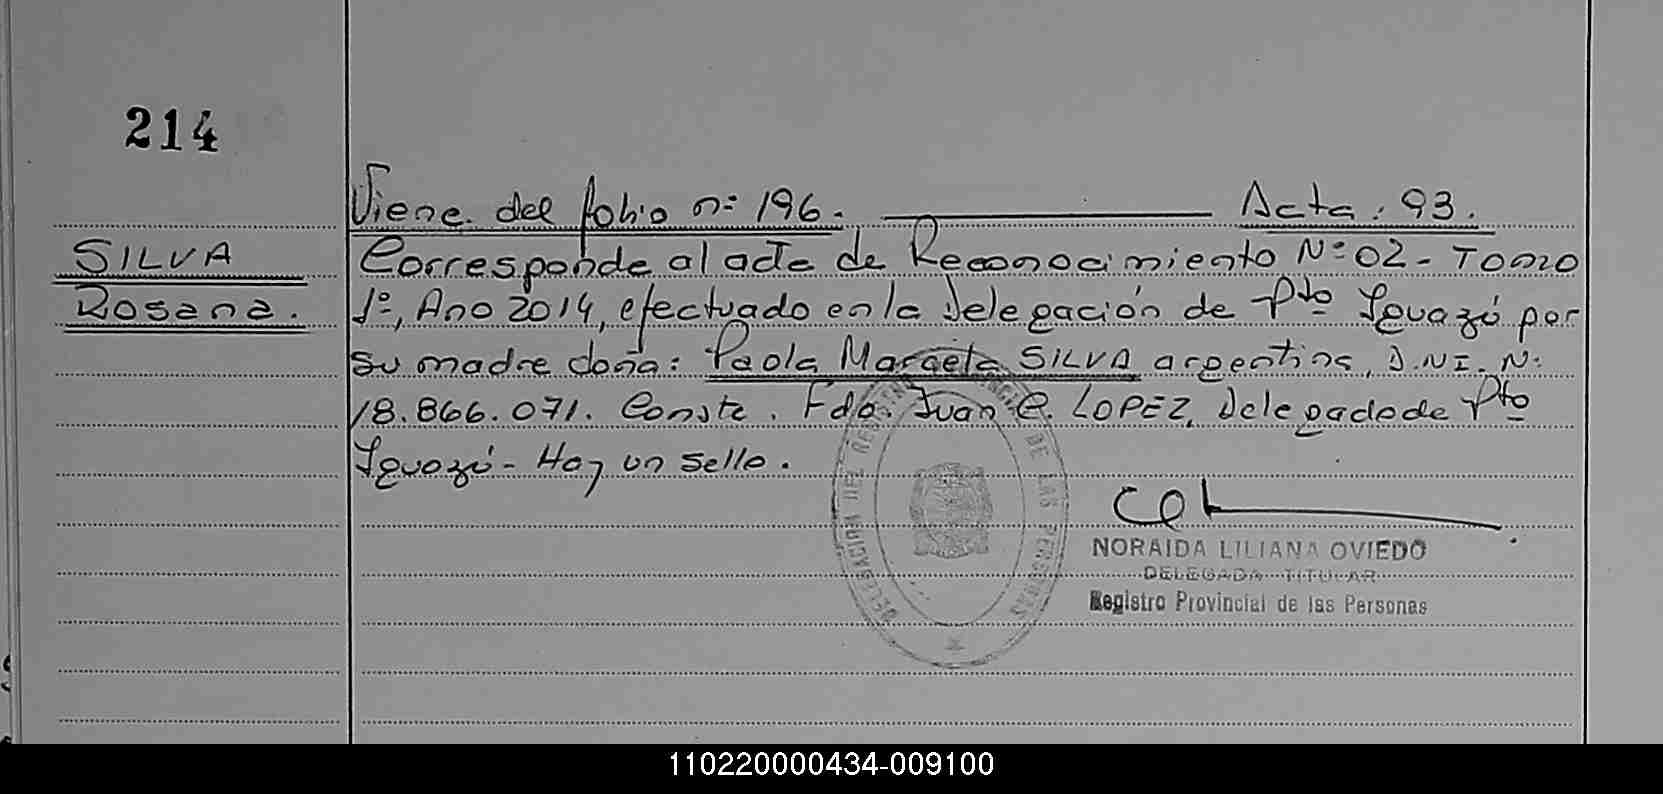 214
Viene del folio nº 196. Acta: 93.
SILVA
Rosana.
Corresponde al acta de Reconocimiento Nº 02 - Tomo
1º, Ano 2014, efectuado en la Delegación de Pto Iguazú por
su madre doña: Paola Marcela SILVA argentina, D.NI. Nº
18.866.071. Conste. Fdo. Juan C. LOPEZ, Delegado de Pto
Iguazú - Hay un sello.
DELEGACION DEL REGISTRO PROVINCIAL DE LAS PERSONAS
NORAIDA LILIANA OVIEDO
DELEGADA TITULAR
Registro Provincial de las Personas
110220000434-009100